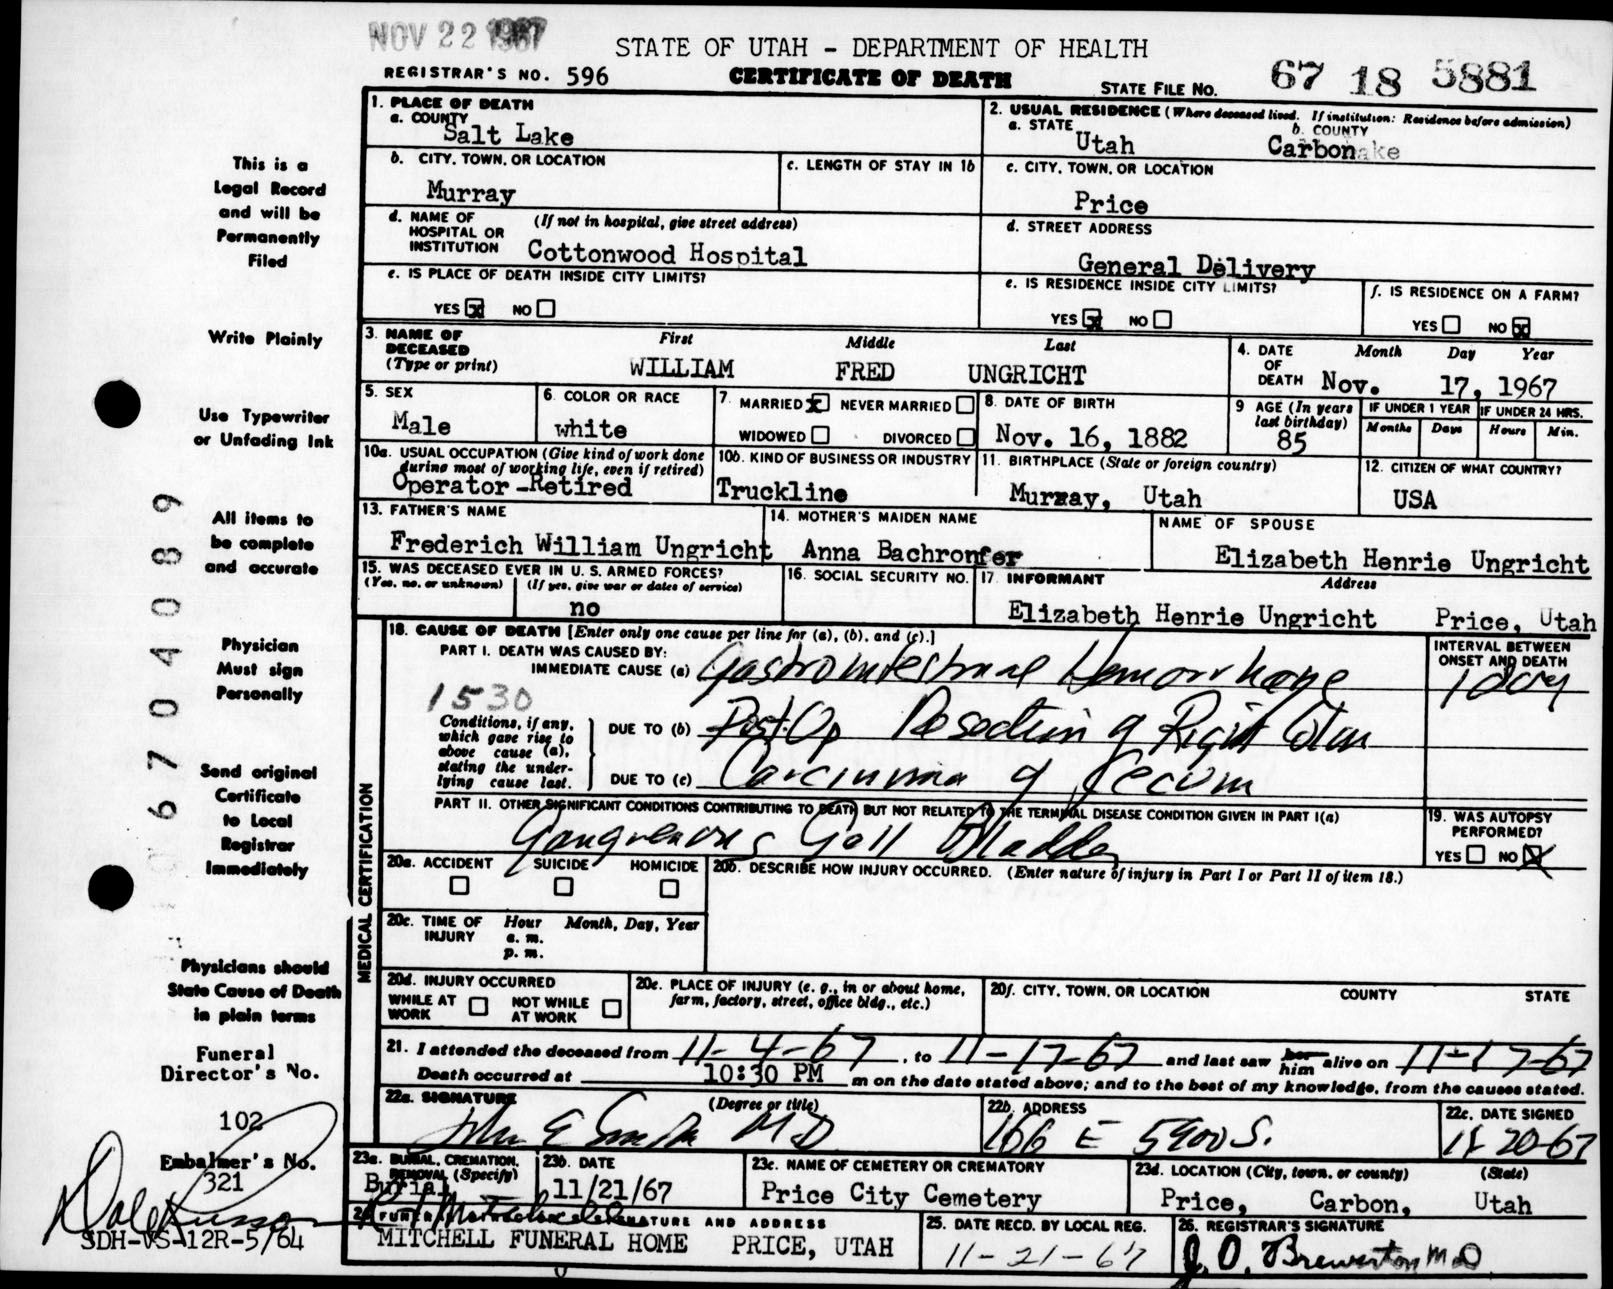 NOV 22 1967
STATE OF UTAH - DEPARTMENT OF HEALTH
REGISTRAR'S NO. 596
CERTIFICATE OF DEATH
STATE FILE NO. 67 18 5881
This is a
Legal Record
and will be
Permanently
Filed
Write Plainly
Use Typewriter
or Unfading Ink
All items to
be complete
and accurate
Physician
Must sign
Personally
Send original
Certificate
to Local
Registrar
Immediately
Physicians should
State Cause of Death
in plain terms
Funeral
Director's No.
102
Embalmer's No.
321
SDH-VS-12R-5/64
6704089
1. PLACE OF DEATH
a. COUNTY
Salt Lake
2. USUAL RESIDENCE (Where deceased lived. If institution: Residence before admission)
a. STATE
Utah
b. COUNTY
Carbon
b. CITY, TOWN, OR LOCATION
Murray
c. LENGTH OF STAY IN 1b
c. CITY, TOWN, OR LOCATION
Price
d. NAME OF HOSPITAL OR INSTITUTION
(If not in hospital, give street address)
Cottonwood Hospital
d. STREET ADDRESS
General Delivery
e. IS PLACE OF DEATH INSIDE CITY LIMITS?
YES x NO
e. IS RESIDENCE INSIDE CITY LIMITS?
YES x NO
f. IS RESIDENCE ON A FARM?
YES NO x
3. NAME OF DECEASED (Type or print)
First Middle Last
WILLIAM FRED UNGRICHT
4. DATE OF DEATH
Month Day Year
Nov. 17, 1967
5. SEX
Male
6. COLOR OR RACE
white
7. MARRIED x NEVER MARRIED
WIDOWED DIVORCED
8. DATE OF BIRTH
Nov. 16, 1882
9 AGE (In years last birthday)
85
IF UNDER 1 YEAR
Months Days
IF UNDER 24 HRS.
Hours Min.
10a. USUAL OCCUPATION (Give kind of work done during most of working life, even if retired)
Operator-Retired
10b. KIND OF BUSINESS OR INDUSTRY
Truckline
11. BIRTHPLACE (State or foreign country)
Murray, Utah
12. CITIZEN OF WHAT COUNTRY?
USA
13. FATHER'S NAME
Frederich William Ungricht
14. MOTHER'S MAIDEN NAME
Anna Bachronfer
NAME OF SPOUSE
Elizabeth Henrie Ungricht
15. WAS DECEASED EVER IN U. S. ARMED FORCES?
(Yes, no, or unknown) (If yes, give war or dates of service)
no
16. SOCIAL SECURITY NO.
17. INFORMANT Address
Elizabeth Henrie Ungricht Price, Utah
MEDICAL CERTIFICATION
18. CAUSE OF DEATH [Enter only one cause per line for (a), (b), and (c).]
PART I. DEATH WAS CAUSED BY:
IMMEDIATE CAUSE (a) Gastrointestinal Hemorrhage
INTERVAL BETWEEN ONSET AND DEATH
1 day
1530
Conditions, if any, which gave rise to above cause (a), stating the underlying cause last.
DUE TO (b) Post-Op Resection of Right Colon
DUE TO (c) Carcinoma of Cecum
PART II. OTHER SIGNIFICANT CONDITIONS CONTRIBUTING TO DEATH BUT NOT RELATED TO THE TERMINAL DISEASE CONDITION GIVEN IN PART I(a)
Gangrenous Gall Bladder
19. WAS AUTOPSY PERFORMED?
YES NO x
20a. ACCIDENT SUICIDE HOMICIDE
20b. DESCRIBE HOW INJURY OCCURRED. (Enter nature of injury in Part I or Part II of item 18.)
20c. TIME OF INJURY
Hour Month, Day, Year
a. m.
p. m.
20d. INJURY OCCURRED
WHILE AT WORK NOT WHILE AT WORK
20e. PLACE OF INJURY (e. g., in or about home, farm, factory, street, office bldg., etc.)
20f. CITY, TOWN, OR LOCATION COUNTY STATE
21. I attended the deceased from 11-4-67, to 11-17-67 and last saw her him alive on 11-17-67
Death occurred at 10:30 PM m on the date stated above; and to the best of my knowledge, from the causes stated.
22a. SIGNATURE (Degree or title)
John E Smith MD
22b. ADDRESS
166 E 5900 S.
22c. DATE SIGNED
11 20-67
23a. BURIAL, CREMATION, REMOVAL (Specify)
Burial
23b. DATE
11/21/67
23c. NAME OF CEMETERY OR CREMATORY
Price City Cemetery
23d. LOCATION (City, town, or county) (State)
Price, Carbon, Utah
SIGNATURE AND ADDRESS
MITCHELL FUNERAL HOME PRICE, UTAH
25. DATE RECD. BY LOCAL REG.
11-21-67
26. REGISTRAR'S SIGNATURE
J. O. Brewerton MD